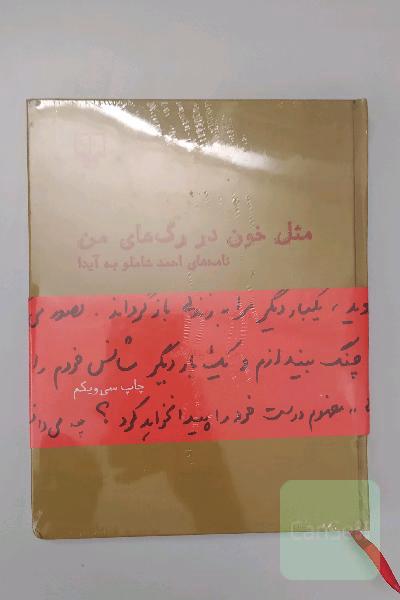 مثل خون در رگ‌های من
نامه‌های احمد شاملو به آیدا
دید، یکبار دیگر مرا به زندگی بازگرداند. تصور می‌ک
چنگ بیندازم و یک بار دیگر شانس خودم را
چاپ سی و یکم
مفهوم درست خود را پیدا نخواهد کرد؟ چه می‌دان